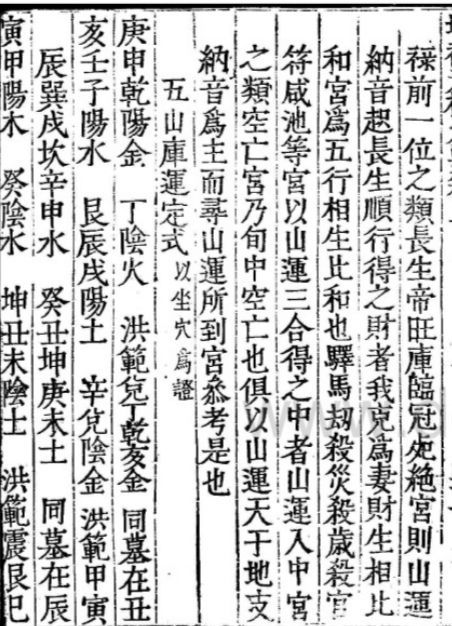 祿前一位之類長生帝旺庫臨冠死絶宮則山運
納音起長生順行得之財者我克爲妻財生相比
和宮爲五行相生比和也驛馬刼殺災殺歲殺官
符咸池等宮以山運三合得之中者山運入中宮
之類空亡宮乃旬中空亡也俱以山運天干地支
納音爲主而尋山運所到宮叅考是也
五山庫運定式以坐穴爲證
庚申乾陽金 丁陰火 洪範兌丁乾亥金 同墓在丑
亥壬子陽水 艮辰戌陽土 辛兌陰金 洪範甲寅
辰巽戌坎辛申水 癸丑坤庚未土 同墓在辰
寅甲陽木 癸陰水 坤丑未陰土 洪範震艮巳